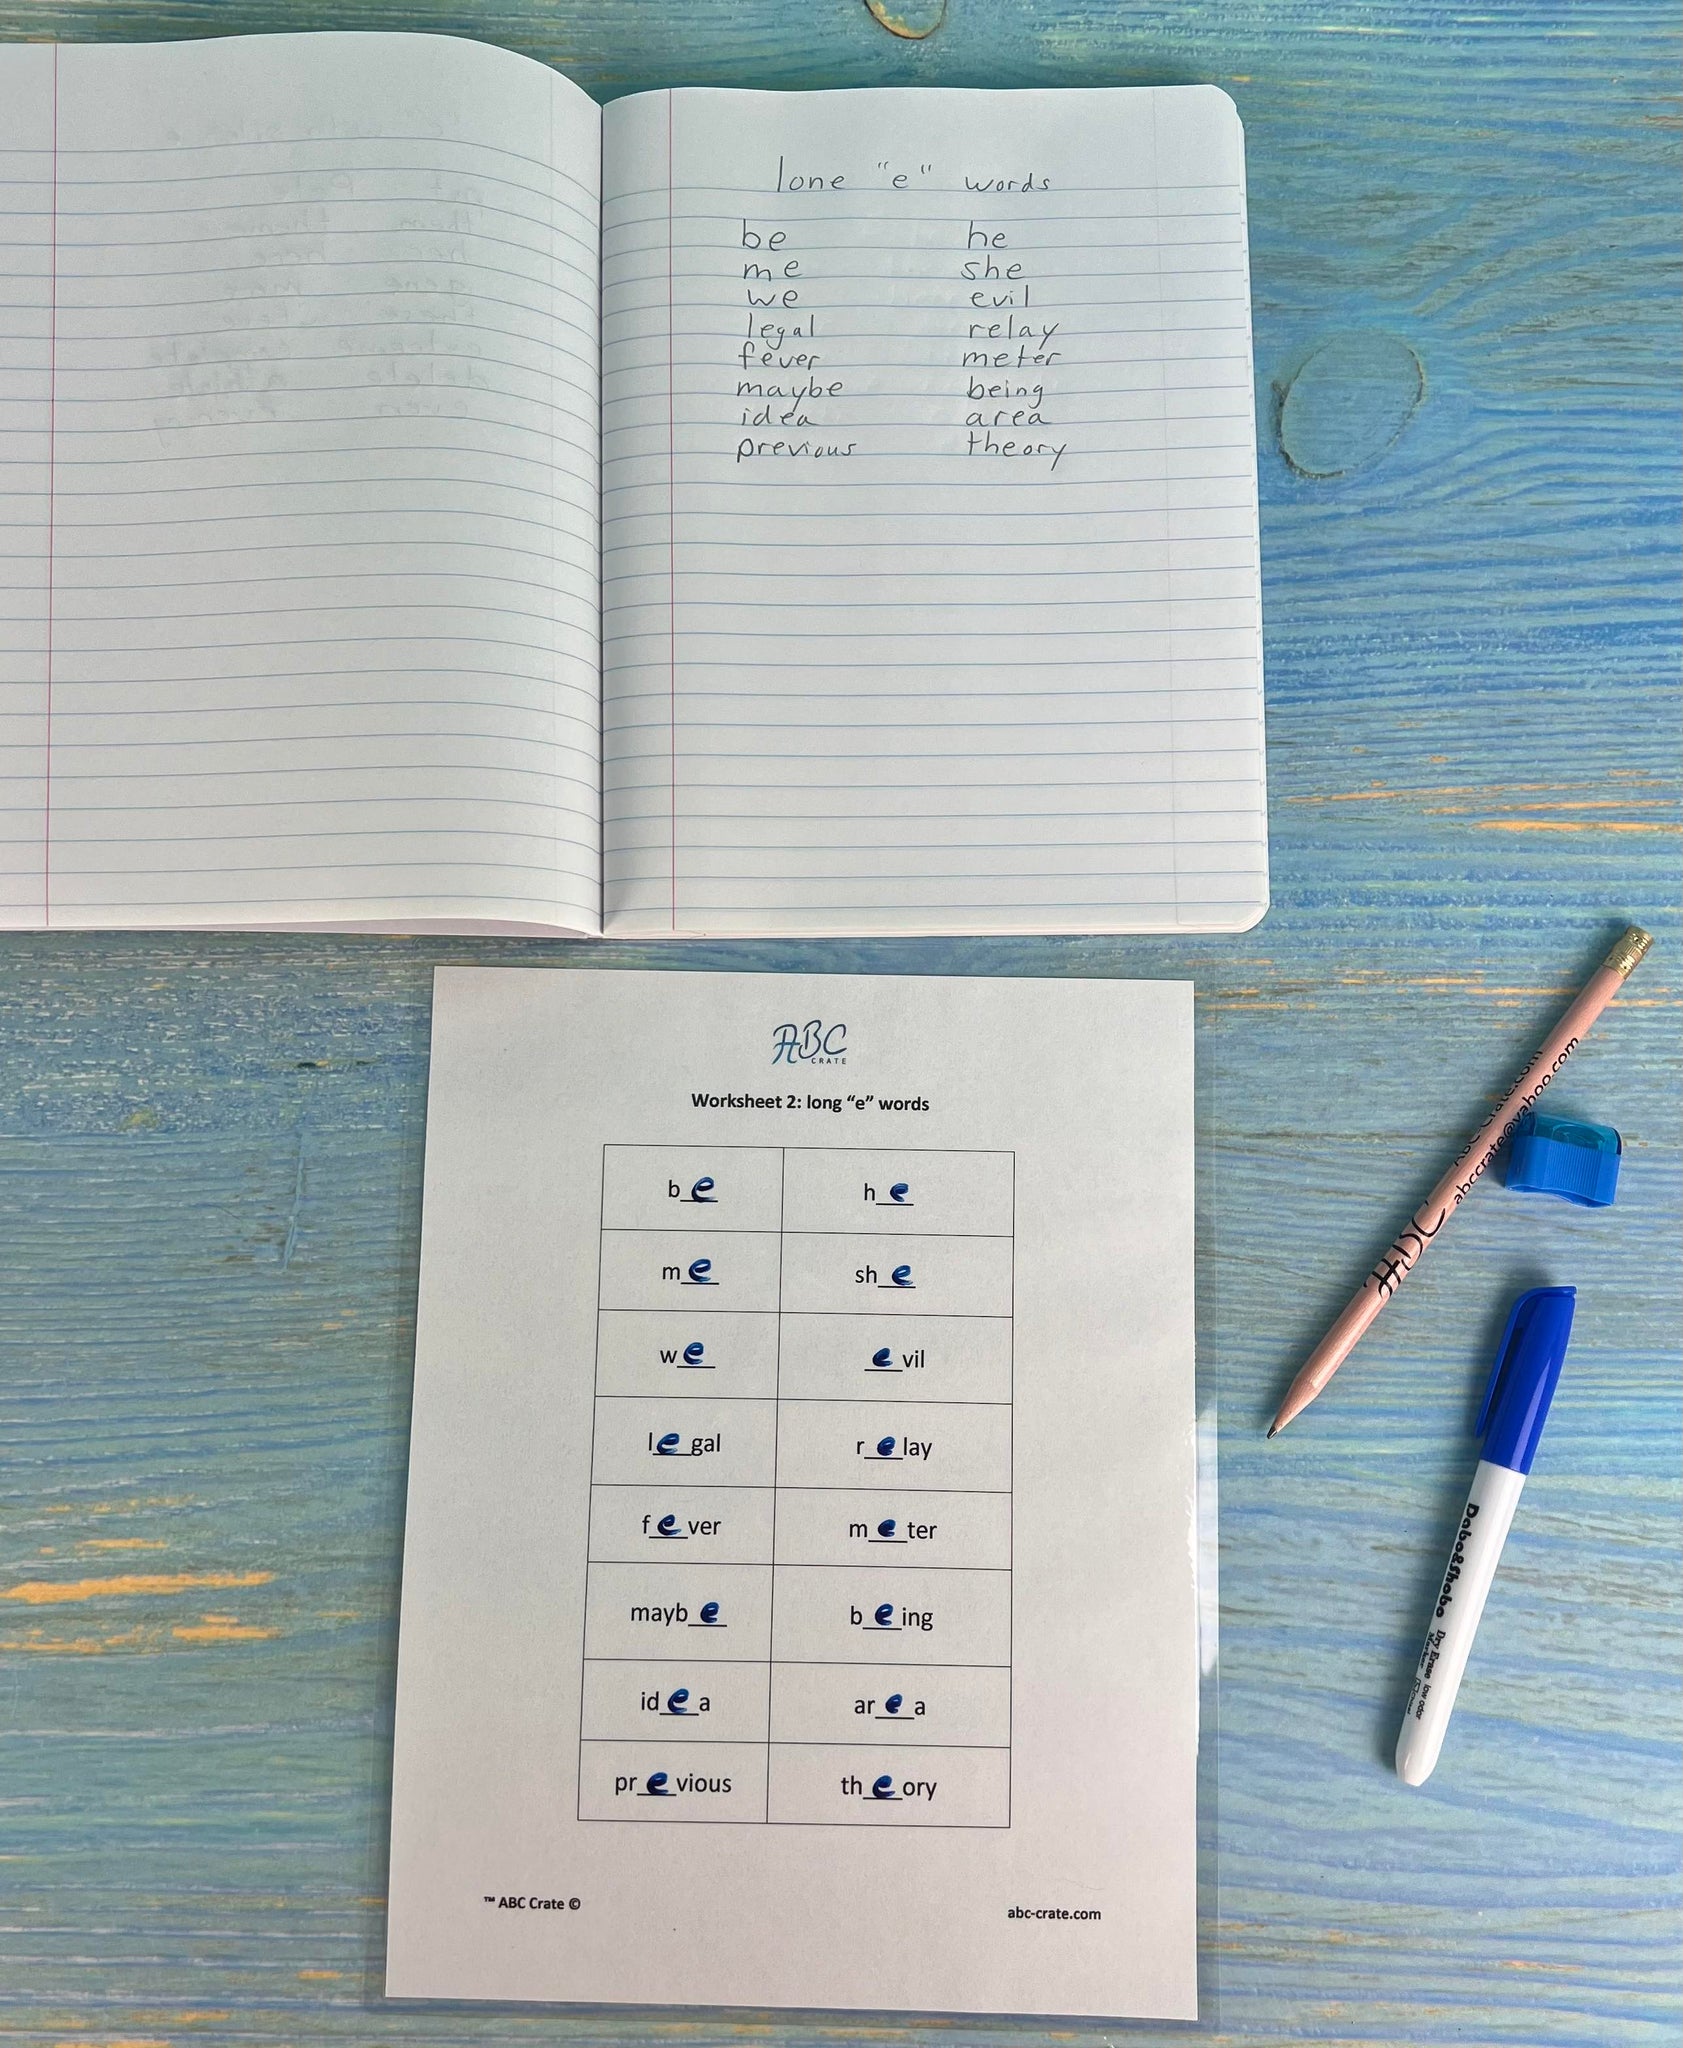 lone "e" words
be he
me she
we evil
legal relay
fever meter
maybe being
idea area
previous theory
ABC
CRATE
Worksheet 2: long “e” words
be he
me she
we evil
legal relay
fever meter
maybe being
idea area
previous theory
™ ABC Crate © abc-crate.com
ABC
ABC-Crate.com
abccrate@yahoo.com
Dabo&Shobo Dry Erase low odor
Marker